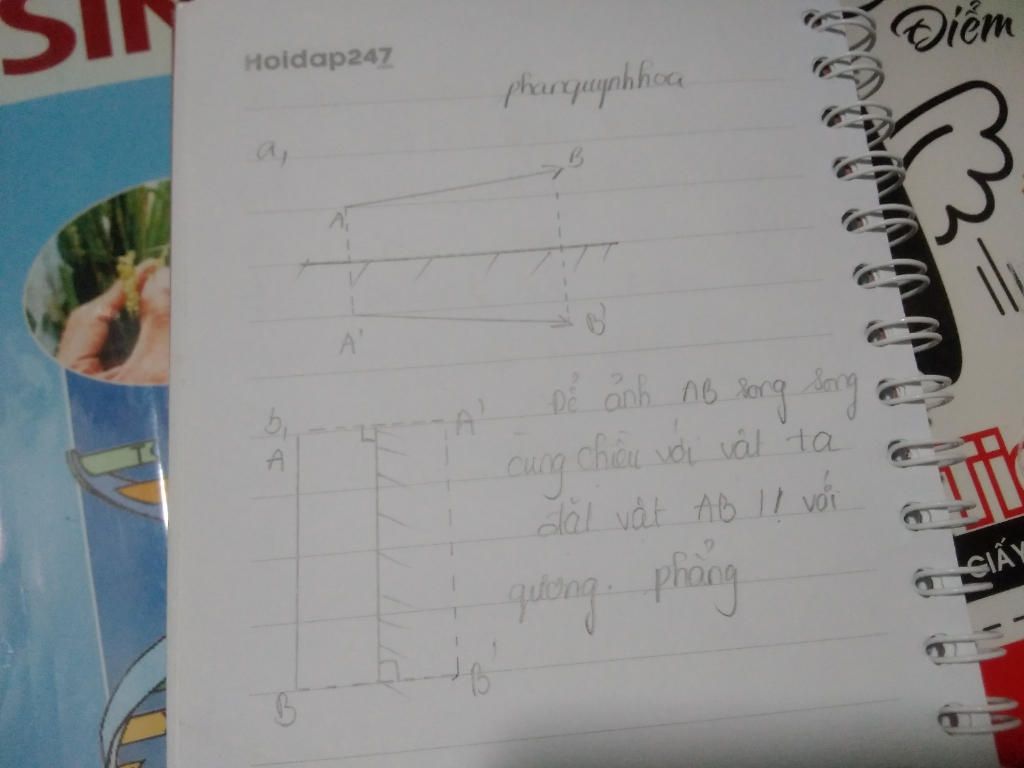 SIN
Điểm
Hoidap247
phanquynhhoa
a,
B
A
A'
B'
b,
A'
A
Để ảnh AB song song
cùng chiều với vật ta
đặt vật AB // với
gương. phẳng
B
B'
GIẤY